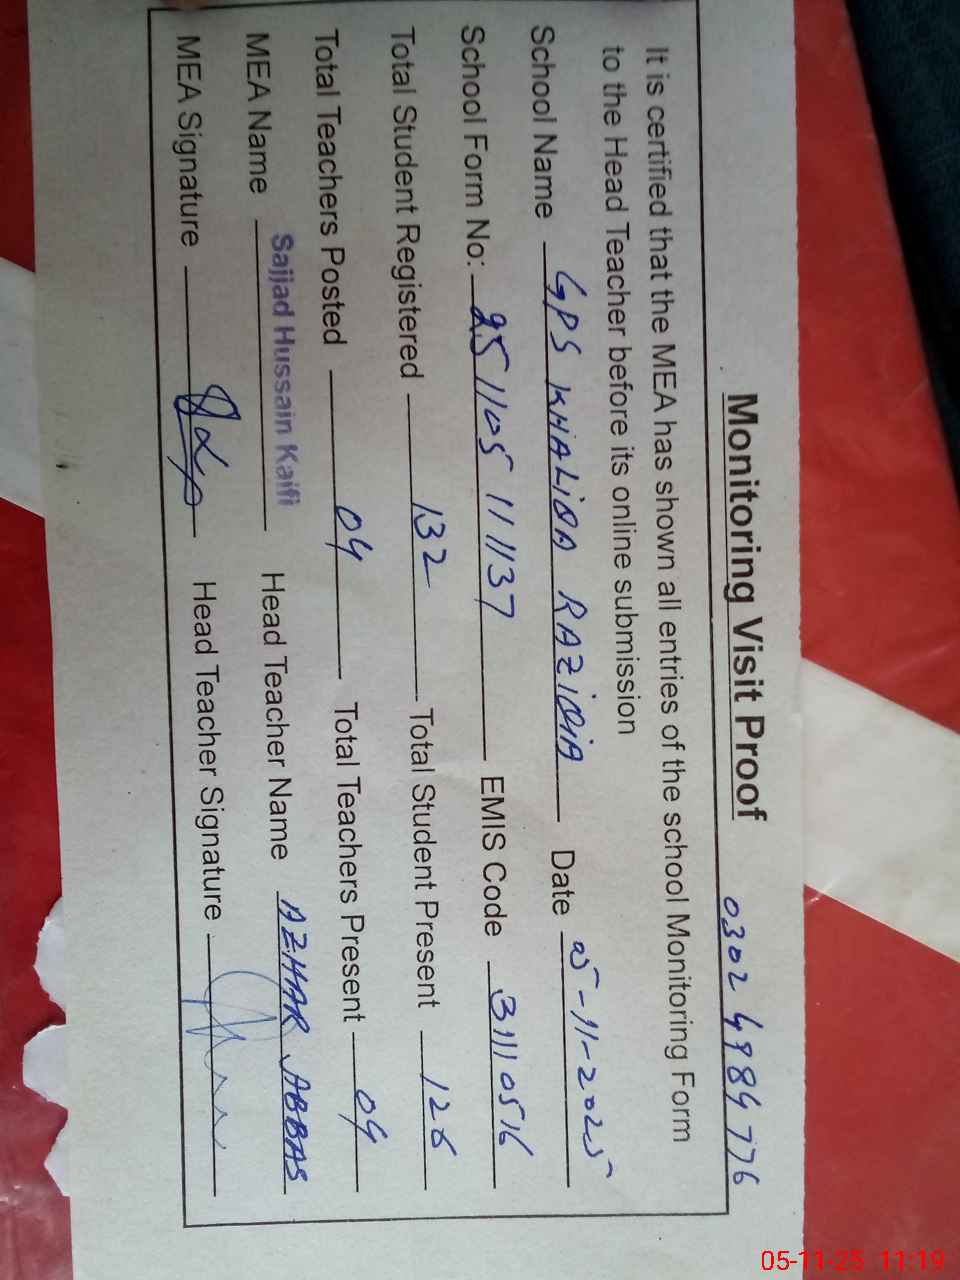 Monitoring Visit Proof 0302 4984776
It is certified that the MEA has shown all entries of the school Monitoring Form
to the Head Teacher before its online submission
School Name GPS KHALIDA RAZIDIA Date 05-11-2025
School Form No: 2511105 111137 EMIS Code 31110516
Total Student Registered 132 Total Student Present 126
Total Teachers Posted 04 Total Teachers Present 04
MEA Name Sajjad Hussain Kaifi Head Teacher Name AZHAR ABBAS
MEA Signature Head Teacher Signature
05-11-25 11:19